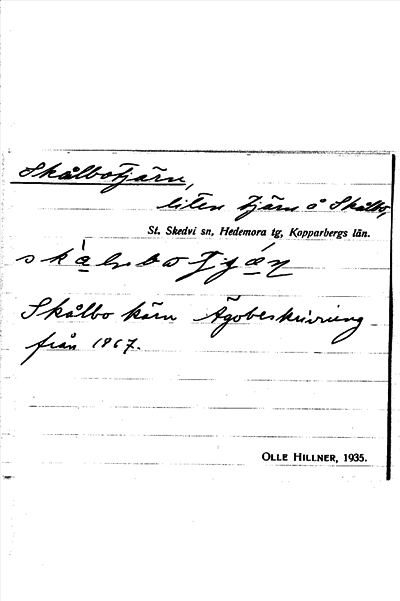 Skålbotjärn,
liten tjärn å Skålbo,
St. Skedvi sn, Hedemora tg, Kopparbergs län.
Skålbo kärn Ägobeskrivning
från 1867.
OLLE HILLNER, 1935.